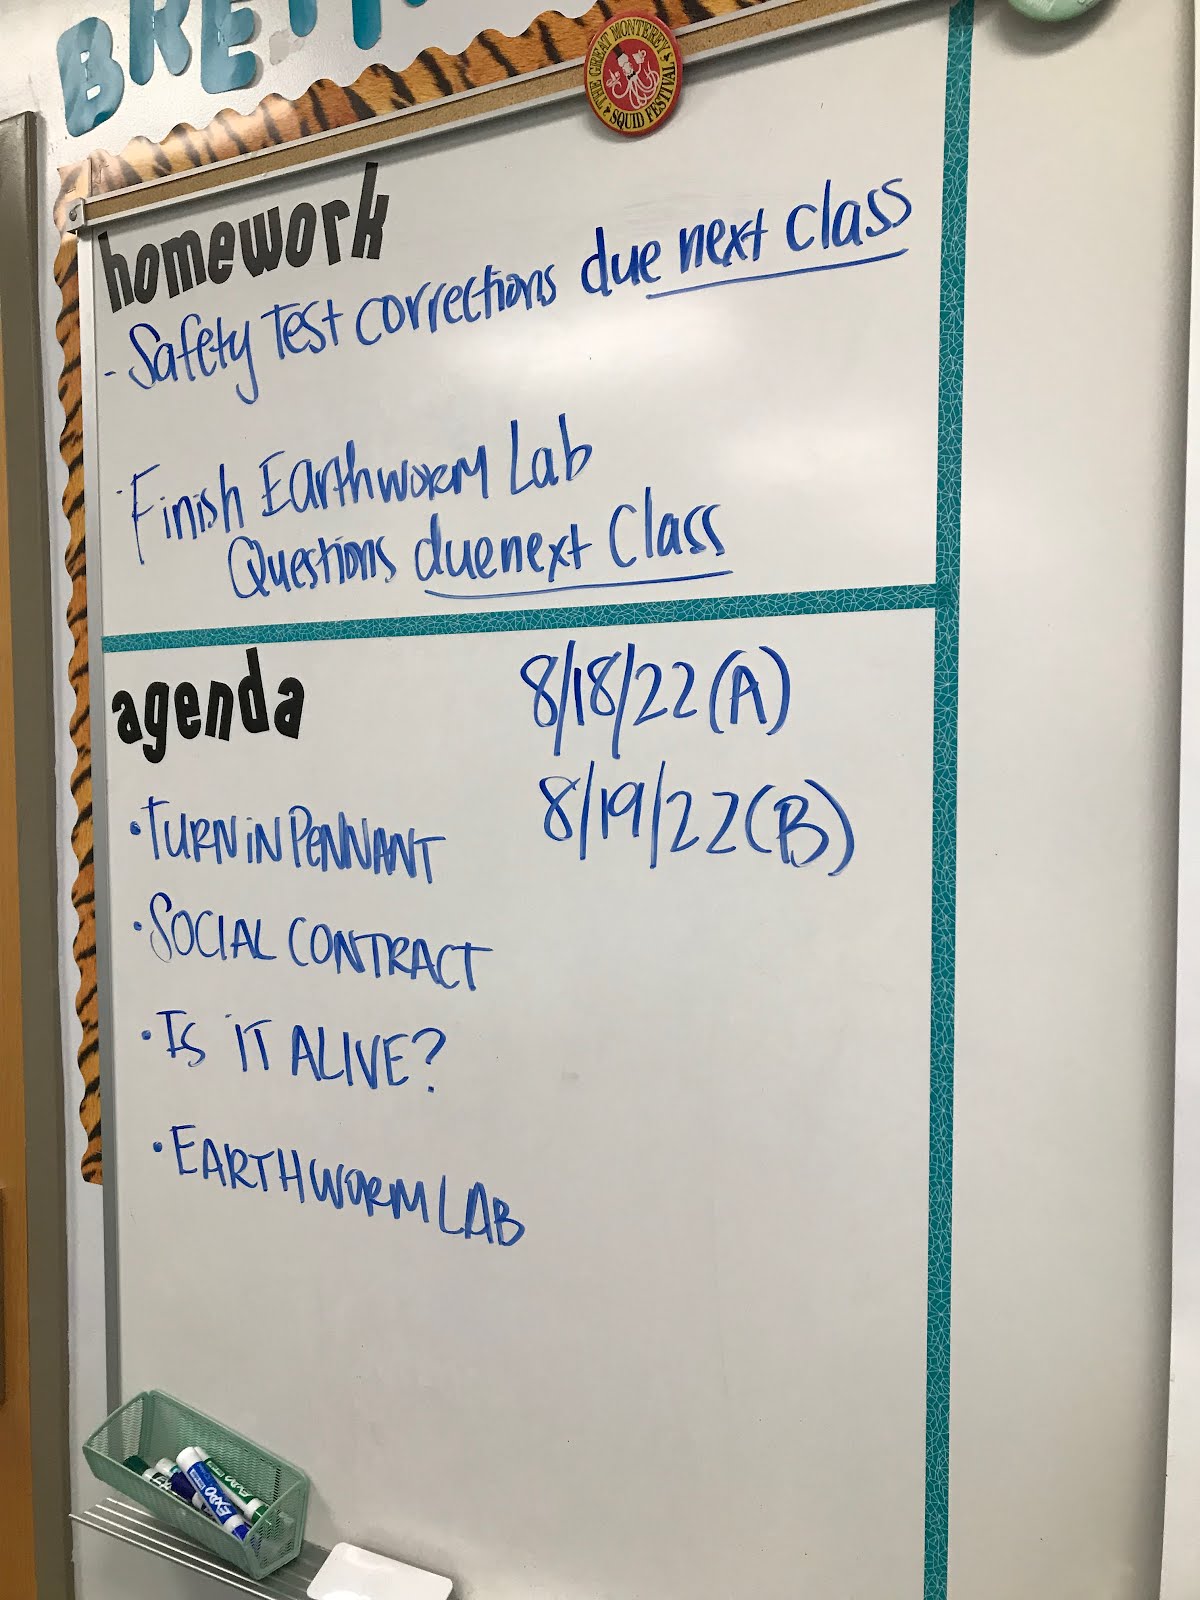 THE GREAT MONTEREY
SQUID FESTIVAL
homework
- Safety Test corrections due next class
· Finish Earthworm Lab
Questions due next Class
agenda
8/18/22 (A)
8/19/22 (B)
• TURN IN PENNANT
• SOCIAL CONTRACT
• IS IT ALIVE?
• EARTHWORM LAB
EXPO
EXPO